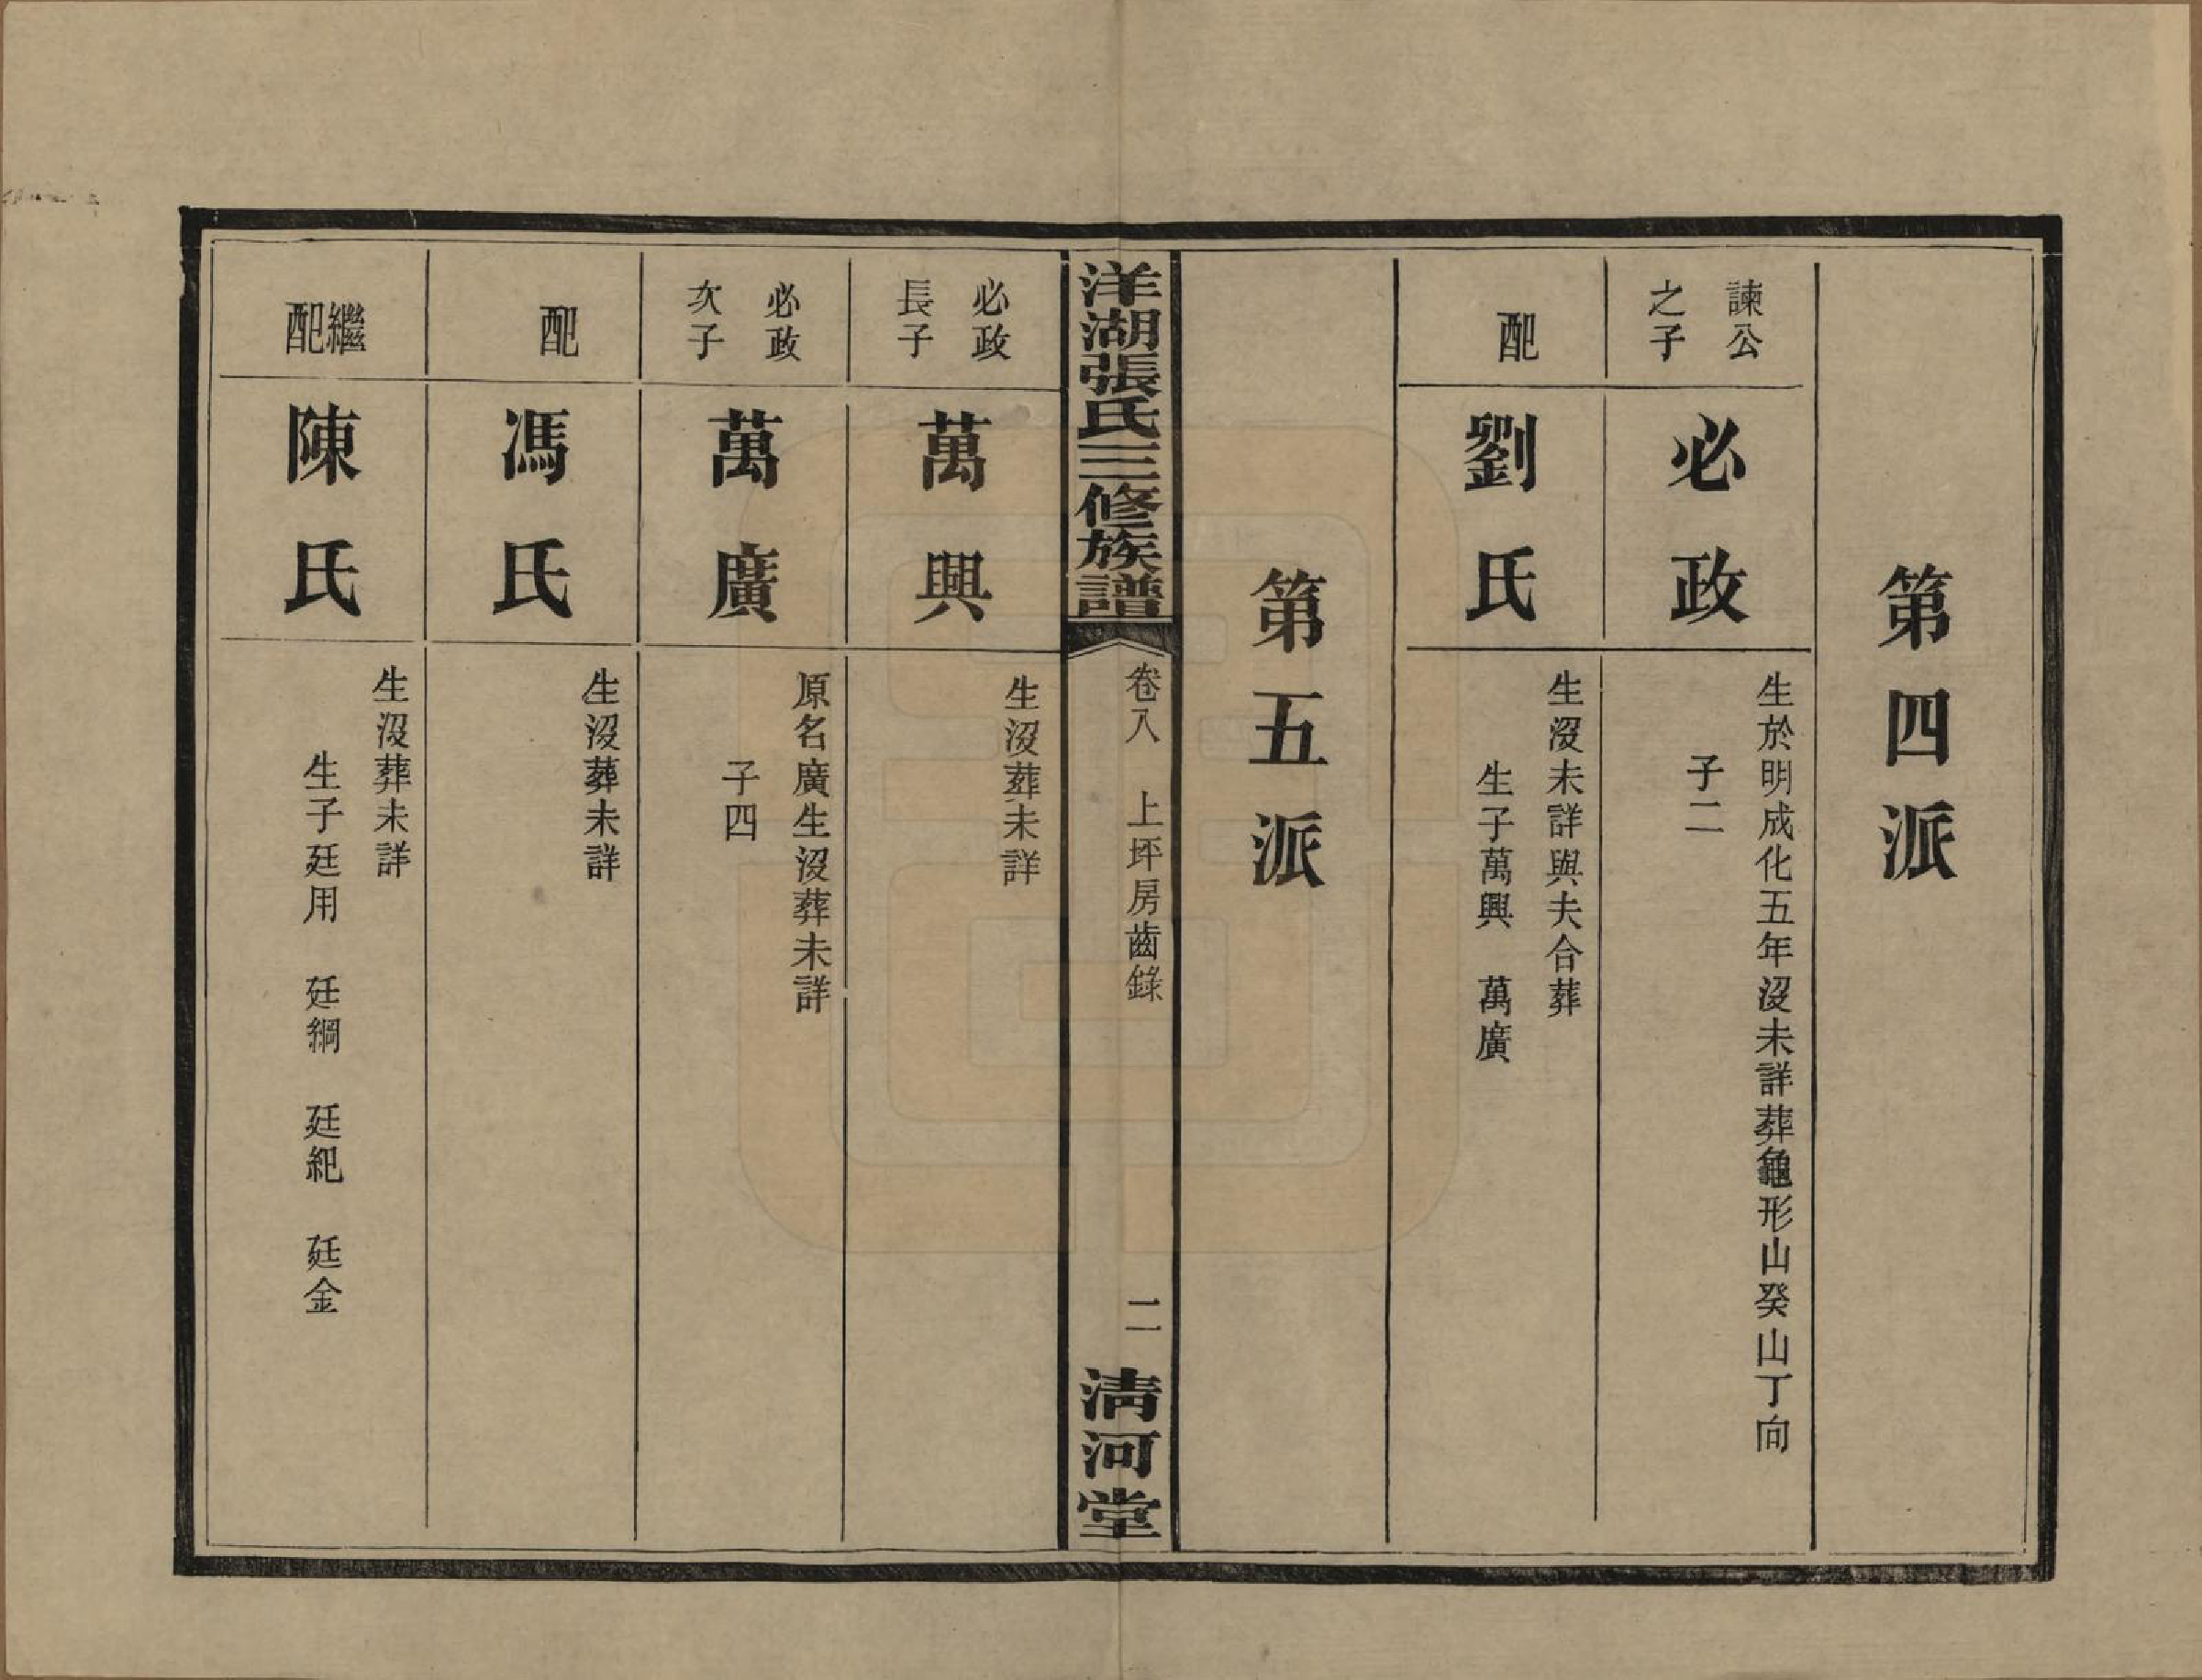 第四派
諫公
之子
必政
生於明成化五年沒未詳葬龜形山癸山丁向
子二
配
劉氏
生沒未詳與夫合葬
生子萬興　萬廣
第五派
洋湖張氏三修族譜
卷八　上坪房齒錄
二
清河堂
必政
長子
萬興
生沒葬未詳
必政
次子
萬廣
原名廣生沒葬未詳
子四
配
馮氏
生沒葬未詳
繼
配
陳氏
生沒葬未詳
生子廷用　廷綱　廷紀　廷金